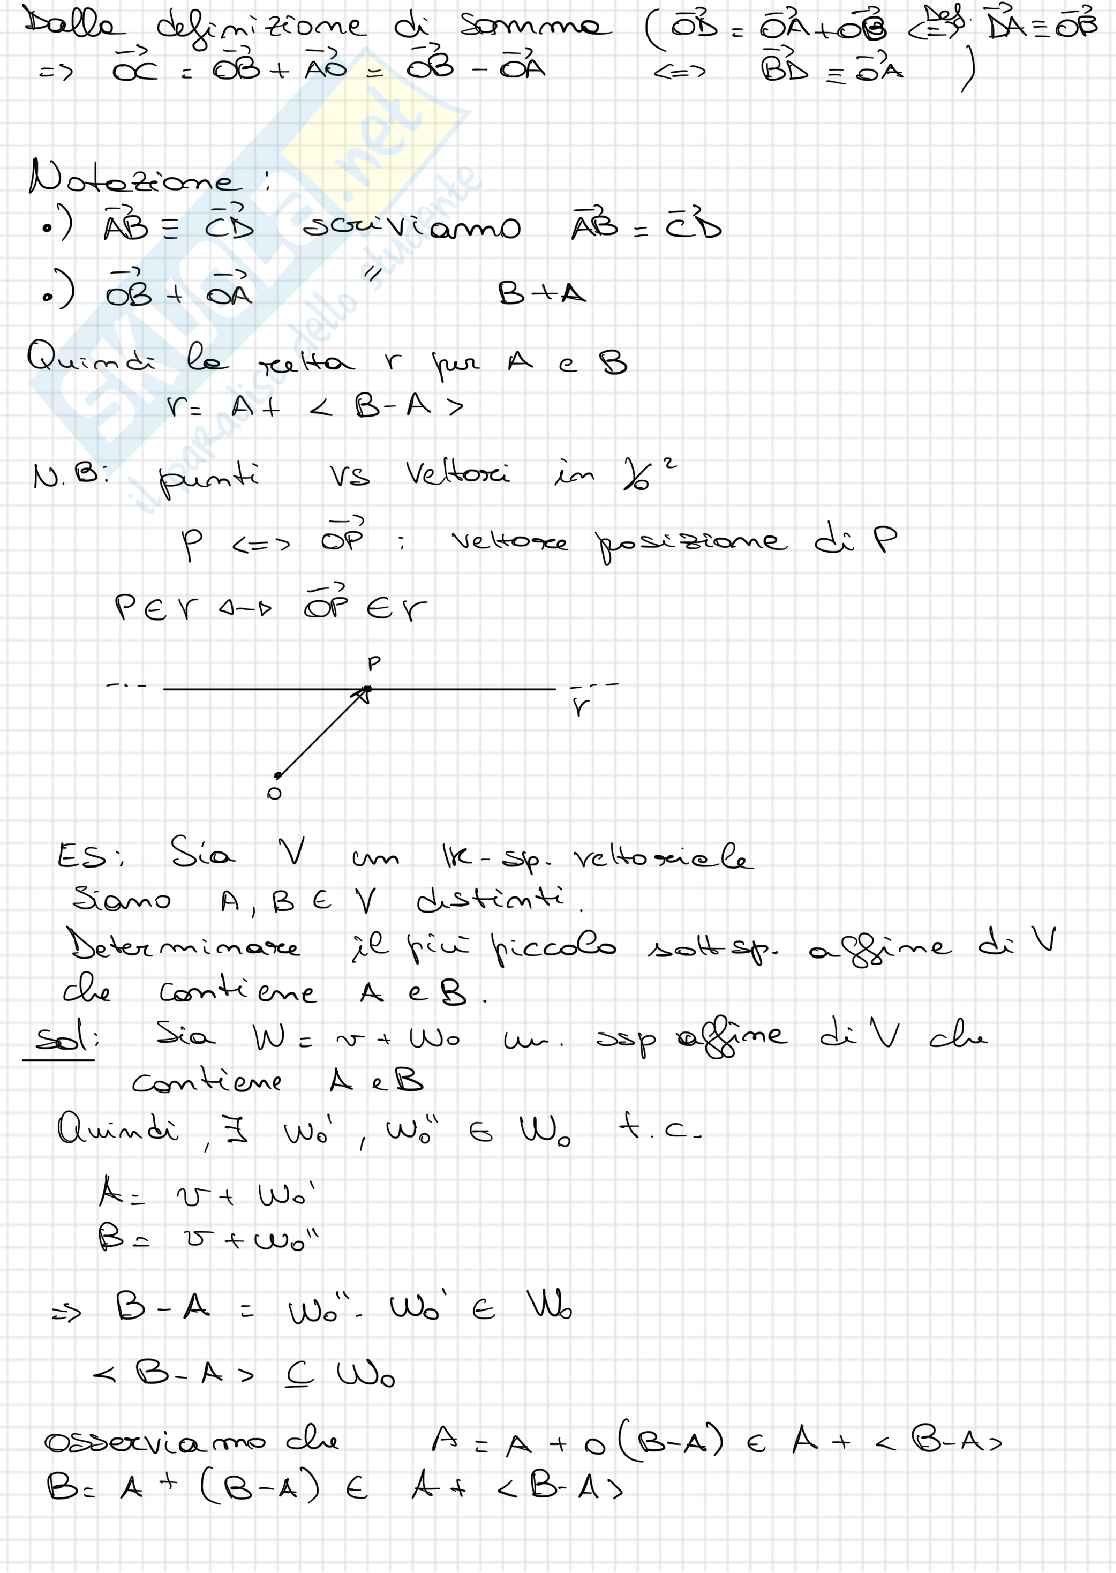 Dalla definizione di somma ( $\vec{OD} = \vec{OA} + \vec{OB} \overset{Def.}{<=>} \vec{DA} \equiv \vec{OB}$
=> $\vec{OC} = \vec{OB} + \vec{AO} = \vec{OB} - \vec{OA}$ <=> $\vec{BD} \equiv \vec{OA}$ )
Notazione :
•) $\vec{AB} \equiv \vec{CD}$ scriviamo $\vec{AB} = \vec{CD}$
•) $\vec{OB} + \vec{OA}$ " B+A
Quindi la retta r per A e B
r = A + < B-A >
N.B: punti vs vettori in $V_0^2$
P <=> $\vec{OP}$ : vettore posizione di P
P ∈ r <-> $\vec{OP}$ ∈ r
P
r
O
ES: Sia V un K-sp. vettoriale
Siano A, B ∈ V distinti.
Determinare il più piccolo sottsp. affine di V
che contiene A e B.
Sol: Sia W = v + W₀ un. ssp affine di V che
contiene A e B
Quindi, ∃ w₀', w₀'' ∈ W₀ t.c.
A = v + w₀'
B = v + w₀''
=> B-A = w₀'' - w₀' ∈ W₀
< B-A > ⊆ W₀
Osserviamo che A = A + 0(B-A) ∈ A + < B-A >
B = A + (B-A) ∈ A + < B-A >
SKUOLA.net
il paradiso dello studente